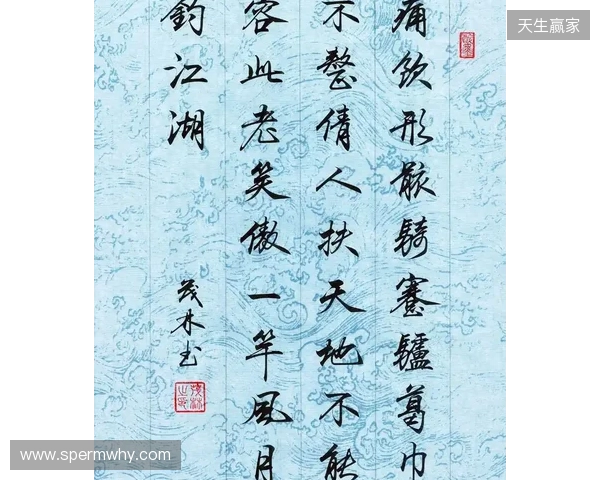 天生赢家
痛飲形骸騎蹇驢葛巾
不整倩人扶天地不能
容此老笑傲一竿風月
釣江湖
茂林书
www.spermwhy.com